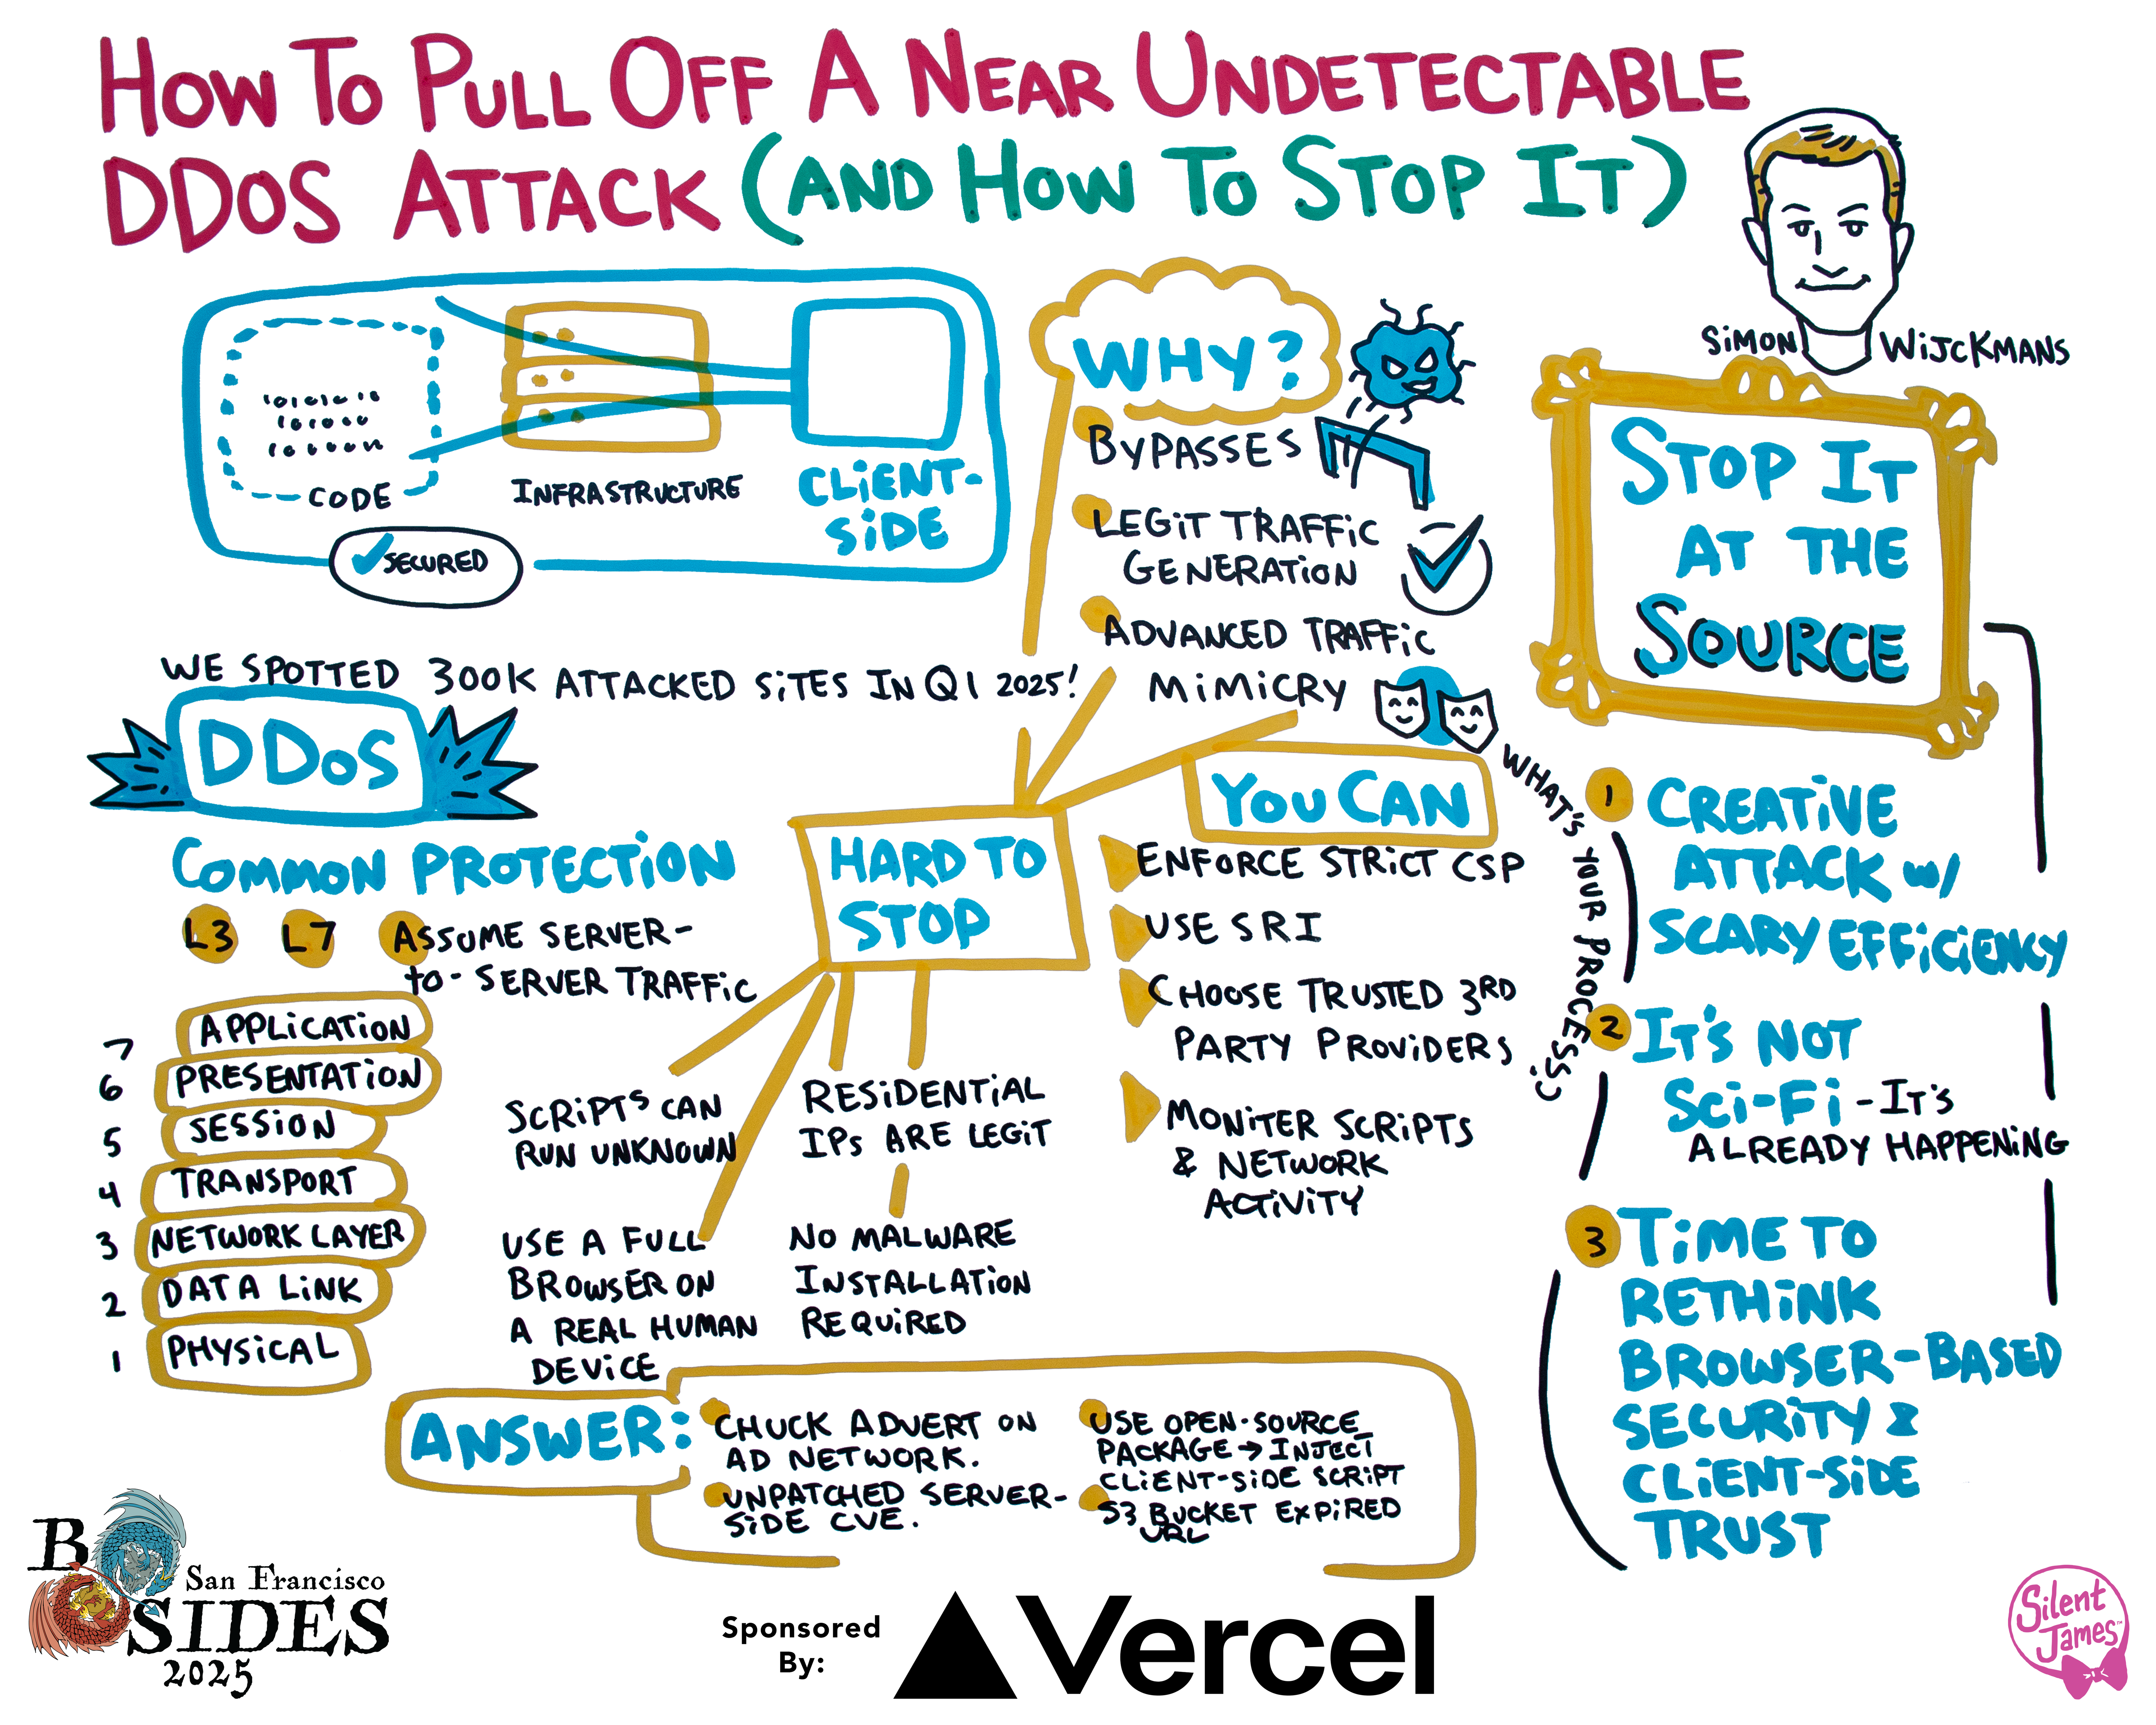 How To Pull Off A Near Undetectable
DDoS Attack (And How To Stop It)
Simon Wijckmans
1010101010
Code
Infrastructure
Client-
Side
Secured
We spotted 300K attacked sites in Q1 2025!
DDoS
Common Protection
L3 L7 Assume server-
to-server traffic
7 Application
6 Presentation
5 Session
4 Transport
3 Network Layer
2 Data Link
1 Physical
Why?
Bypasses
Legit Traffic
Generation
Advanced Traffic
Mimicry
Hard to
Stop
Scripts can
run unknown
Residential
IPs are legit
Use a full
browser on
a real human
device
No malware
installation
required
You Can
Enforce strict CSP
Use SRI
Choose trusted 3rd
party providers
Moniter scripts
& network
activity
Answer:
Chuck advert on
ad network.
Unpatched server-
side CVE.
Use open-source
package → inject
client-side script
S3 bucket expired
URL
Stop It
At The
Source
What's your process?
1 Creative
Attack w/
Scary Efficiency
2 It's Not
Sci-Fi - It's
already happening
3 Time to
Rethink
Browser-Based
Security &
Client-Side
Trust
BSides
San Francisco
2025
Sponsored
By:
Vercel
Silent
James™